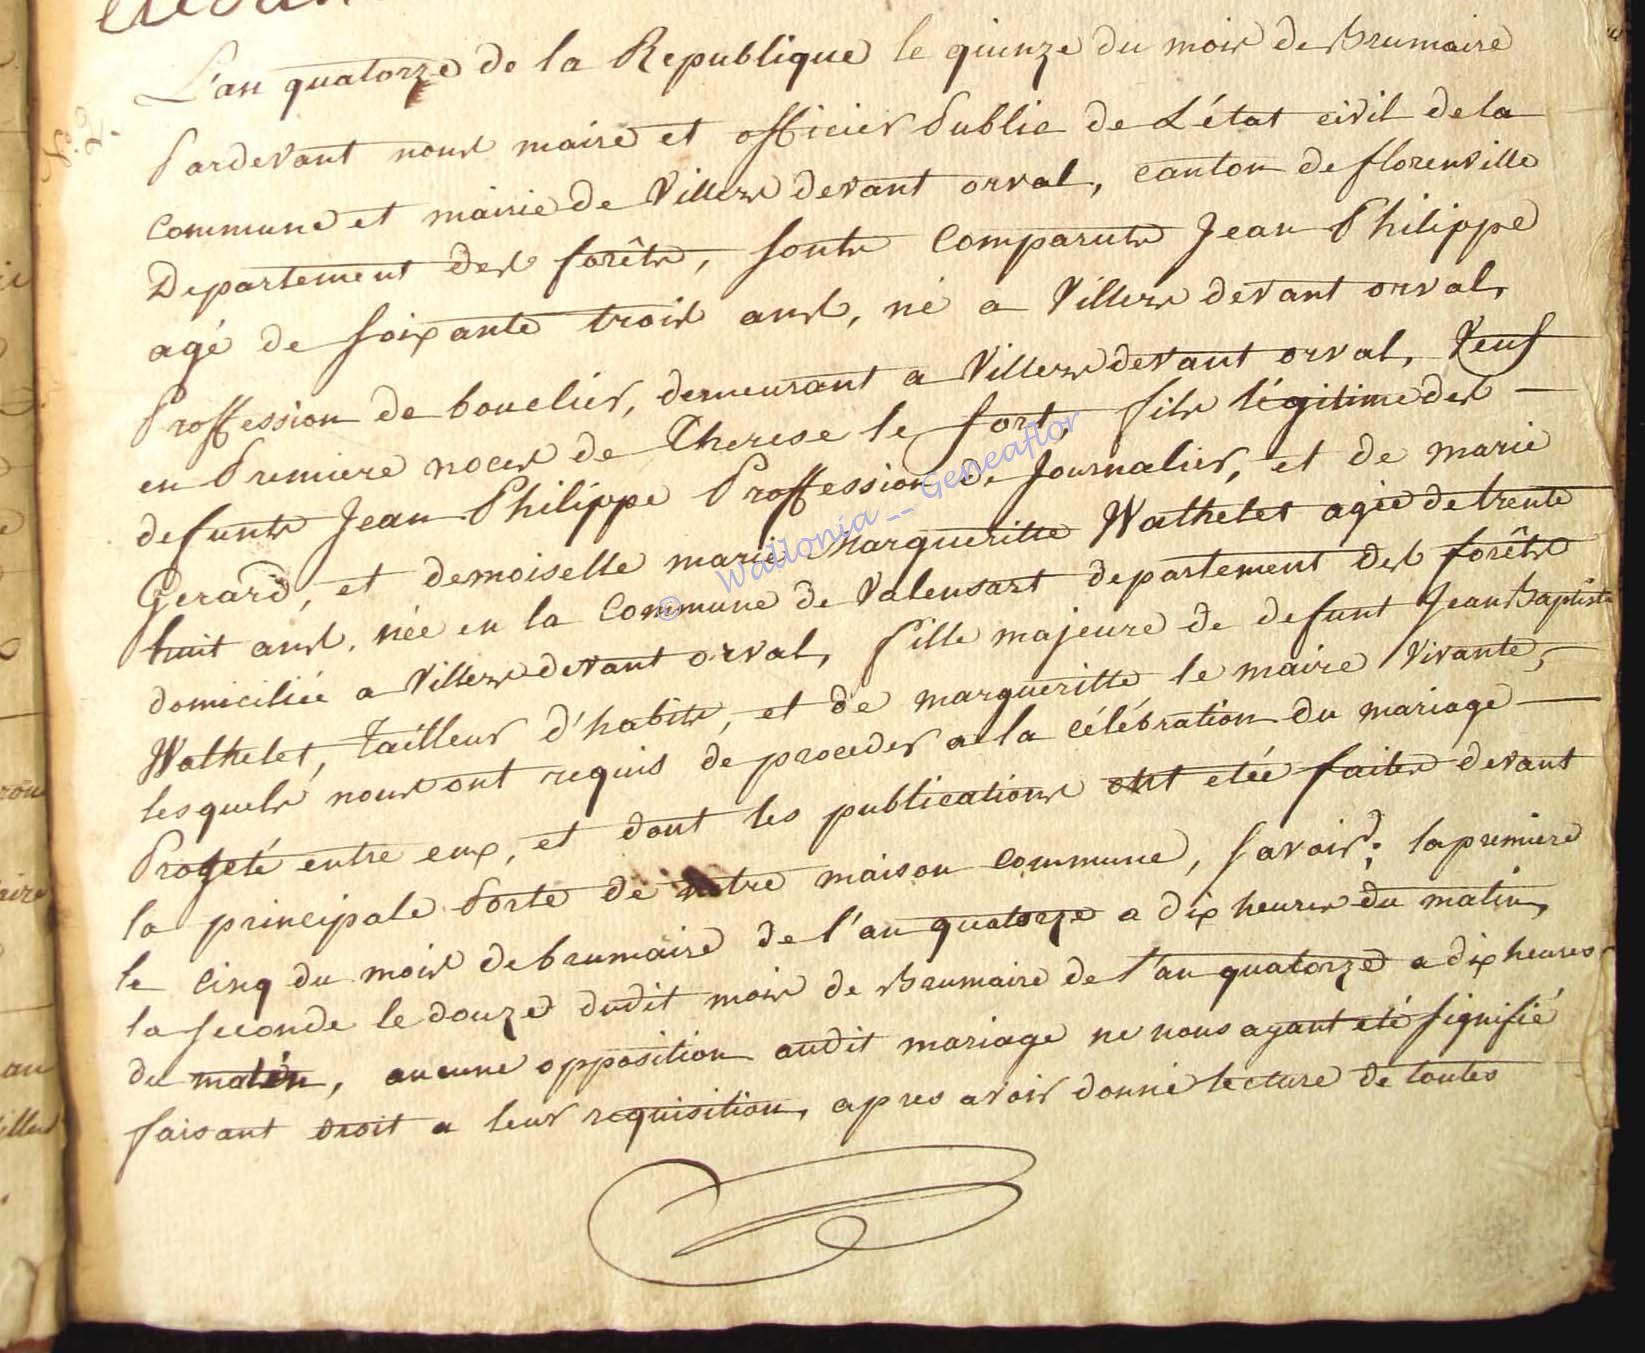 L'an quatorze de la Republique le quinze du mois de Brumaire
Pardevant nous maire et officier Public de L'état civil de la
commune et mairie de Villers devant orval, canton de florenville
Departement des forêts, sonts comparuts Jean Philippe
agé de soixante trois ans, né a Villers devant orval,
Proffession de bouclier, demeurant a Villers devant orval, Veuf
en Premiere noces de Therese le fort, fils légitime des
defunts Jean Philippe Proffession de Journalier, et de marie
Gerard, et demoiselle marie Margueritte Wathelet agée de trente
huit ans, née en la commune de Valensart departement des forêts
domiciliée a Villers devant orval, fille majeure de defunt Jean Baptiste
Wathelet, Tailleur d'habits, et de margueritte le maire vivante,
lesquels nous ont requis de proceder a la célébration du mariage
Projeté entre eux, et dont les publications ont eteé faites devant
la principale Porte de notre maison commune, Savoir; la premiere
le cinq du mois de brumaire de l'an quatorze a dix heures du matin,
la seconde le douze dudit mois de Brumaire de l'an quatorze a dix heures
du matin, aucune opposition audit mariage ne nous ayant eté signifié
faisant droit a leur requisition, apres avoir donné lecture de toutes
© Wallonia__Geneaflor